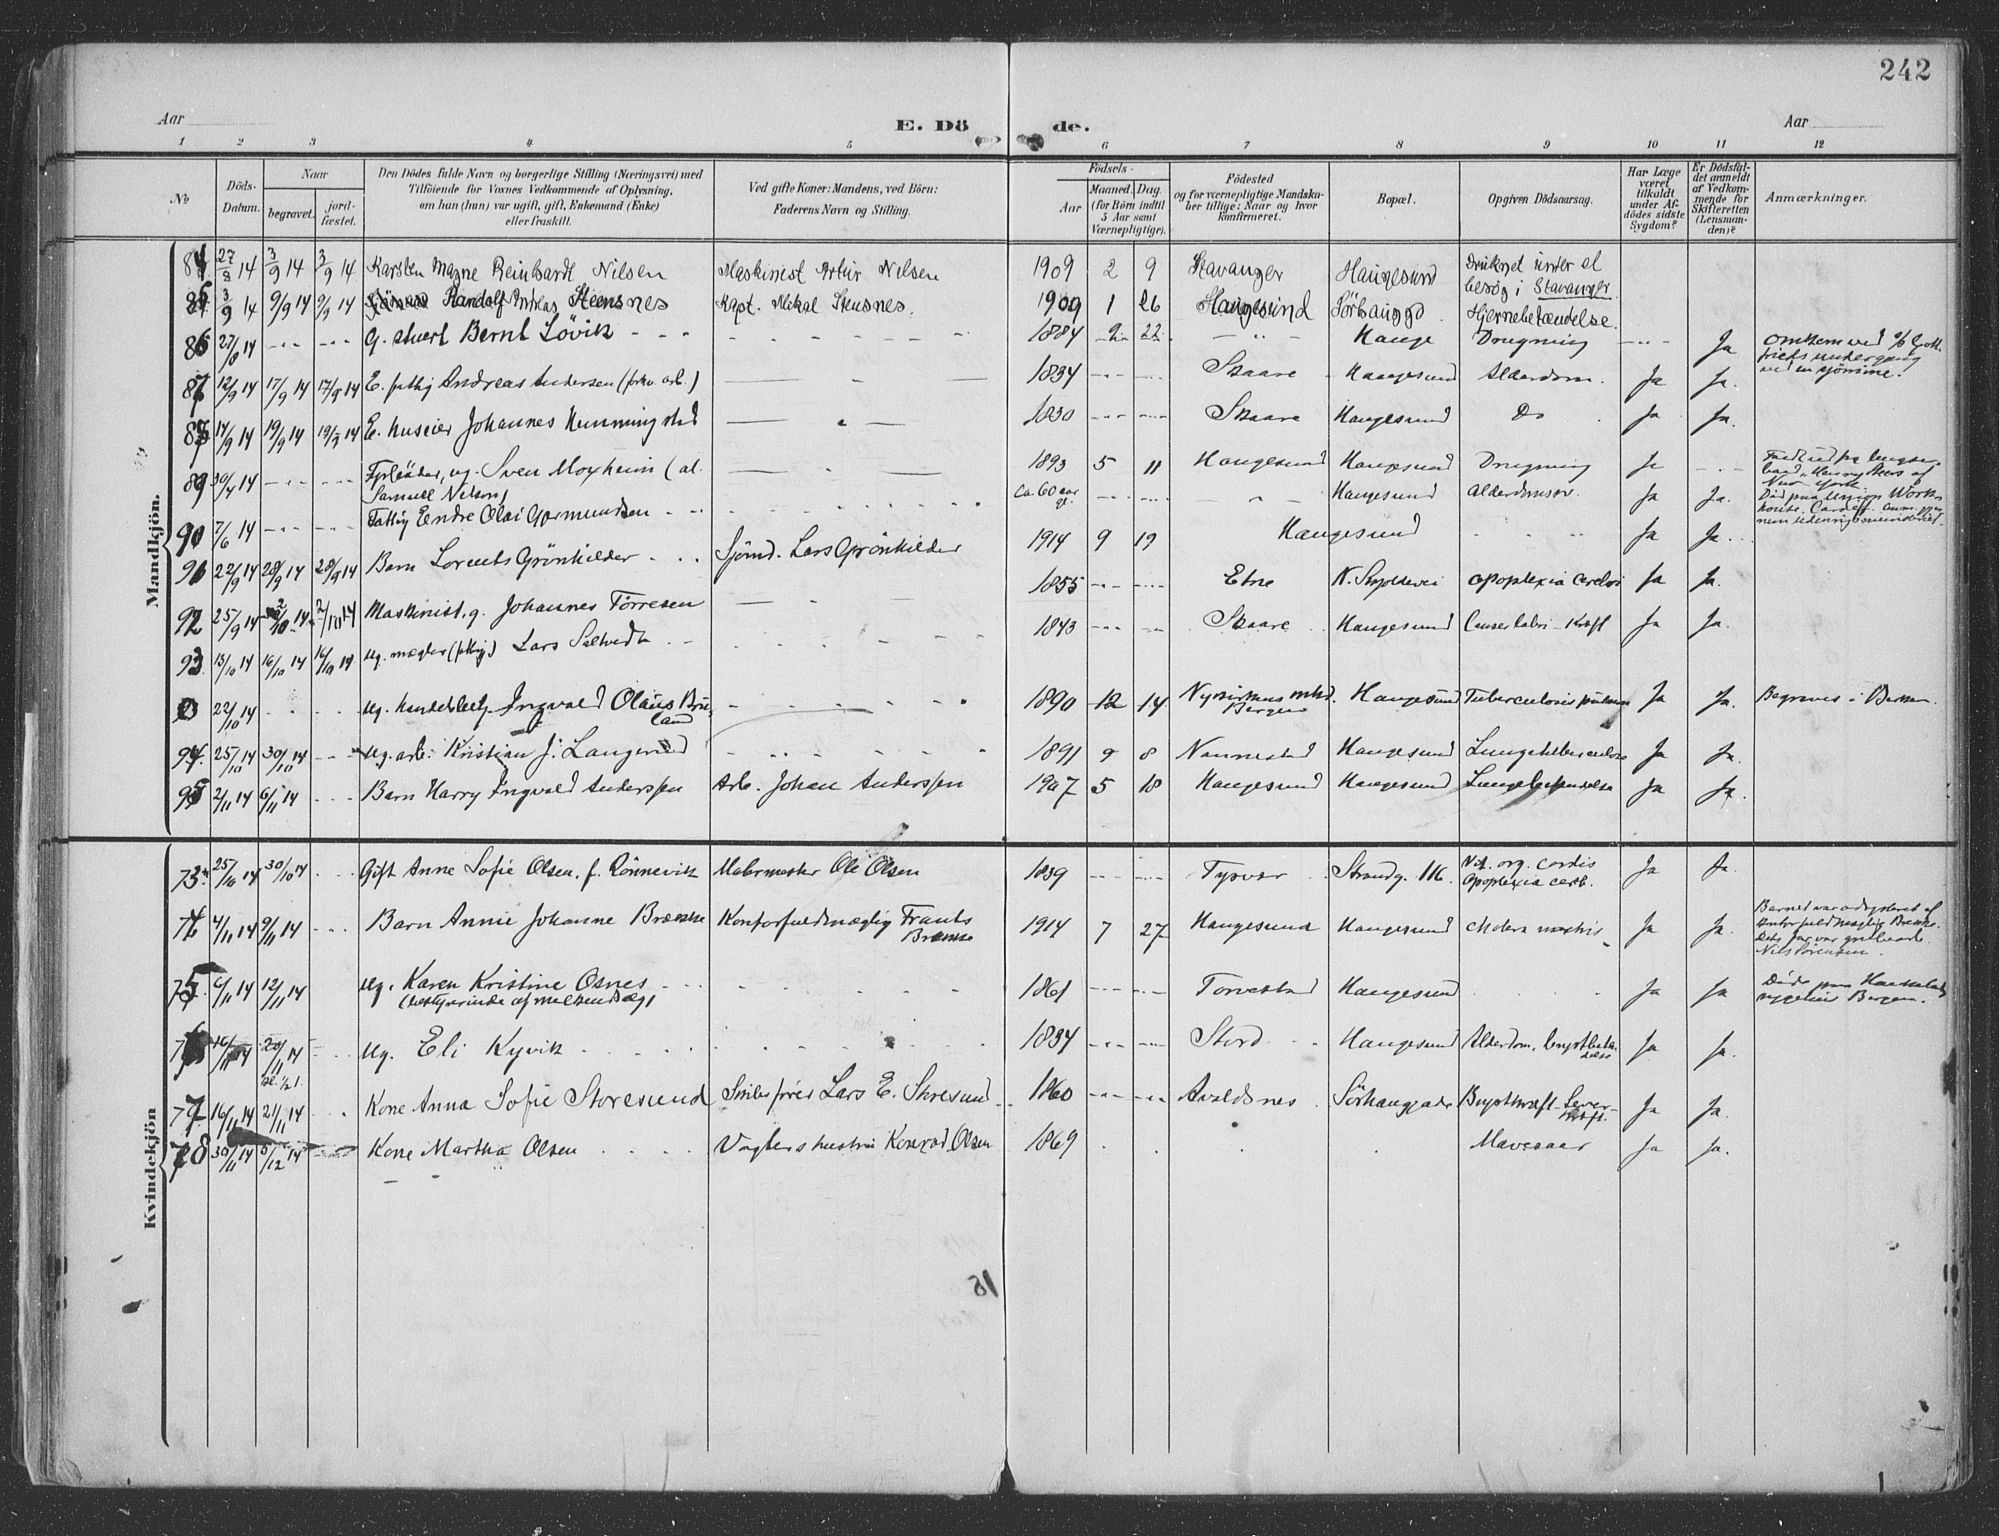 242
Aar
E. Dö de.
Aar
1 2 3 4 5 6 7 8 9 10 11 12
№
Döds-Datum.
Naar
begravet.
jord-fæstet.
Den Dödes fulde Navn og borgerlige Stilling (Næringsvei) med
Tilföiende for Voxnes Vedkommende af Oplysning,
om han (hun) var ugift, gift, Enkemand (Enke)
eller fraskilt.
Ved gifte Koner: Mandens, ved Börn:
Faderens Navn og Stilling.
Födsels-
Aar
Maaned. Dag.
(for Börn indtil
5 Aar samt
Værnepligtige).
Födested
og for værnepligtige Mandska-
ber tillige: Naar og hvor
konfirmeret.
Bopæl.
Opgiven Dödsaarsag.
Har Læge
været
tilkaldt
under Af-
dödes sidste
Sygdom?
Er Dödsfal-
det anmeldt
af Vedkom-
mende for
Skifteretten
(Lensman-
den)?
Anmærkninger.
Mandkjön.
84 27/8 14 3/9 14 3/9 14 Karsten Magne Reinhardt Nilsen Maskinist Artur Nilsen 1909 2 9 Stavanger Haugesund Druknet under et
besøg i Stavanger
85 3/9 14 9/9 14 9/9 14 Randolf Andreas Steensnes Kapt. Mikal Stensnes 1909 1 26 Haugesund Sørhauggd. Hjernebetændelse.
86 27/8 14 g. stuert Bernt Lövik 1884 2 22 Hauge Drugning Ja Omkom ved
undergang
87 12/9 14 17/9 14 17/9 14 E. fattig Andreas Andersen (forhv. arb.) 1834 Skaare Haugesund Alderdom. Ja Ja.
14/9 14 19/9 14 19/9 14 E. huseier Johannes Hemmingstad 1830 Skaare Haugesund Do Ja Ja.
89 30/4 14 Fyrböder, ug. Sven Moxheim (al.
Samuel Nilson) 1893 5 11 Haugesund Haugesund Drugning Ja
90 7/6 14 Fattig Endre Olai Gormundsen ca. 60 aar gl. Haugesund Alderdomssv. Ja Ja. Död paa Union Work-
house, Cardiff
91 22/9 14 28/9 14 28/9 14 Barn Lorents Grönhilder Sjömd. Lars Grönhilder 1914 9 19 Haugesund Ja Ja
92 25/9 14 2/10 14 2/10 14 Maskinist, g. Johannes Törresen 1855 Etne N. Skoldevei apoplexia cerebri Ja Ja.
93 13/10 14 16/10 14 16/10 14 ug. mægler (fattig) Lars Saltvedt 1843 Skaare Haugesund Cancer labri - Kræft Ja Ja.
0 22/10 14 ug. handelsbetj. Ingvald Olaus Bru-
land 1890 12 14 Bergen Haugesund Tuberculosis pulmon Ja Ja. Begraves i Bergen.
94 25/10 14 30/10 14 ug. arb. Kristian J. Langerud 1891 9 8 Nannestad Haugesund Lungetuberculose Ja Ja.
95 2/11 14 6/11 14 Barn Harry Ingvald Anderssen Arb. Johan Anderssen 1907 5 18 Haugesund Haugesund Lungebetændelse Ja Ja.
Kvindekjön
73 25/10 14 30/10 14 Gift Anne Sofie Olsen, f. Rönnevik Malermester Ole Olsen 1839 Tysvær Strandg. 116. Vit. org. cordis
Apoplexia cerb. Ja Ja.
74 4/11 14 9/11 14 Barn Annie Johanne Brække Kontorfuldmægtig Frants
Brække 1914 7 27 Haugesund Haugesund Cholera nostris Ja Ja. Barnet var adopteret af
Kontorfuldmægtig Brække.
Dets far var
Nils Sörensen.
75 6/11 14 12/11 14 ug. Karen Kristine Osnes
(bestyrerinde af melkeudsalg) 1861 Torvestad Haugesund Ja Ja Döde paa Haukeland
sygehus Bergen.
76 16/11 14 20/11 14 ug. Eli Kyvik 1834 Stord Haugesund Alderdom, brystbetæn-
delse Ja Ja.
77 16/11 14 21/11 14 Kone Anna Sofie Storesund Skibsförer Lars E. Storesund 1860 Avaldsnes Sörhauggade Brystkræft - Lever-
kræft. Ja Ja.
78 30/11 14 5/12 14 Kone Martha Olsen Vogters hustru Konrad Olsen 1869 Mavesaar Ja Ja.